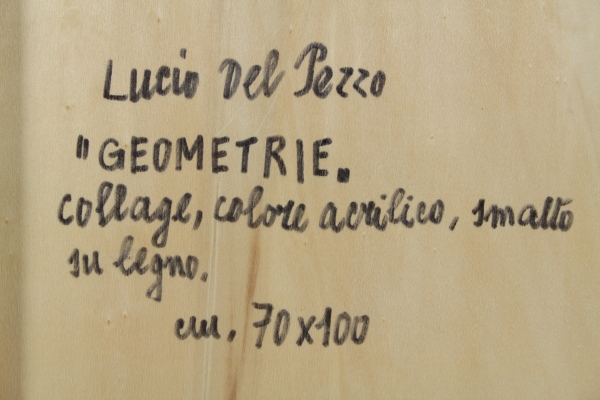 Lucio Del Pezzo
"GEOMETRIE"
collage, colore acrilico, smalto
su legno.
cm. 70x100